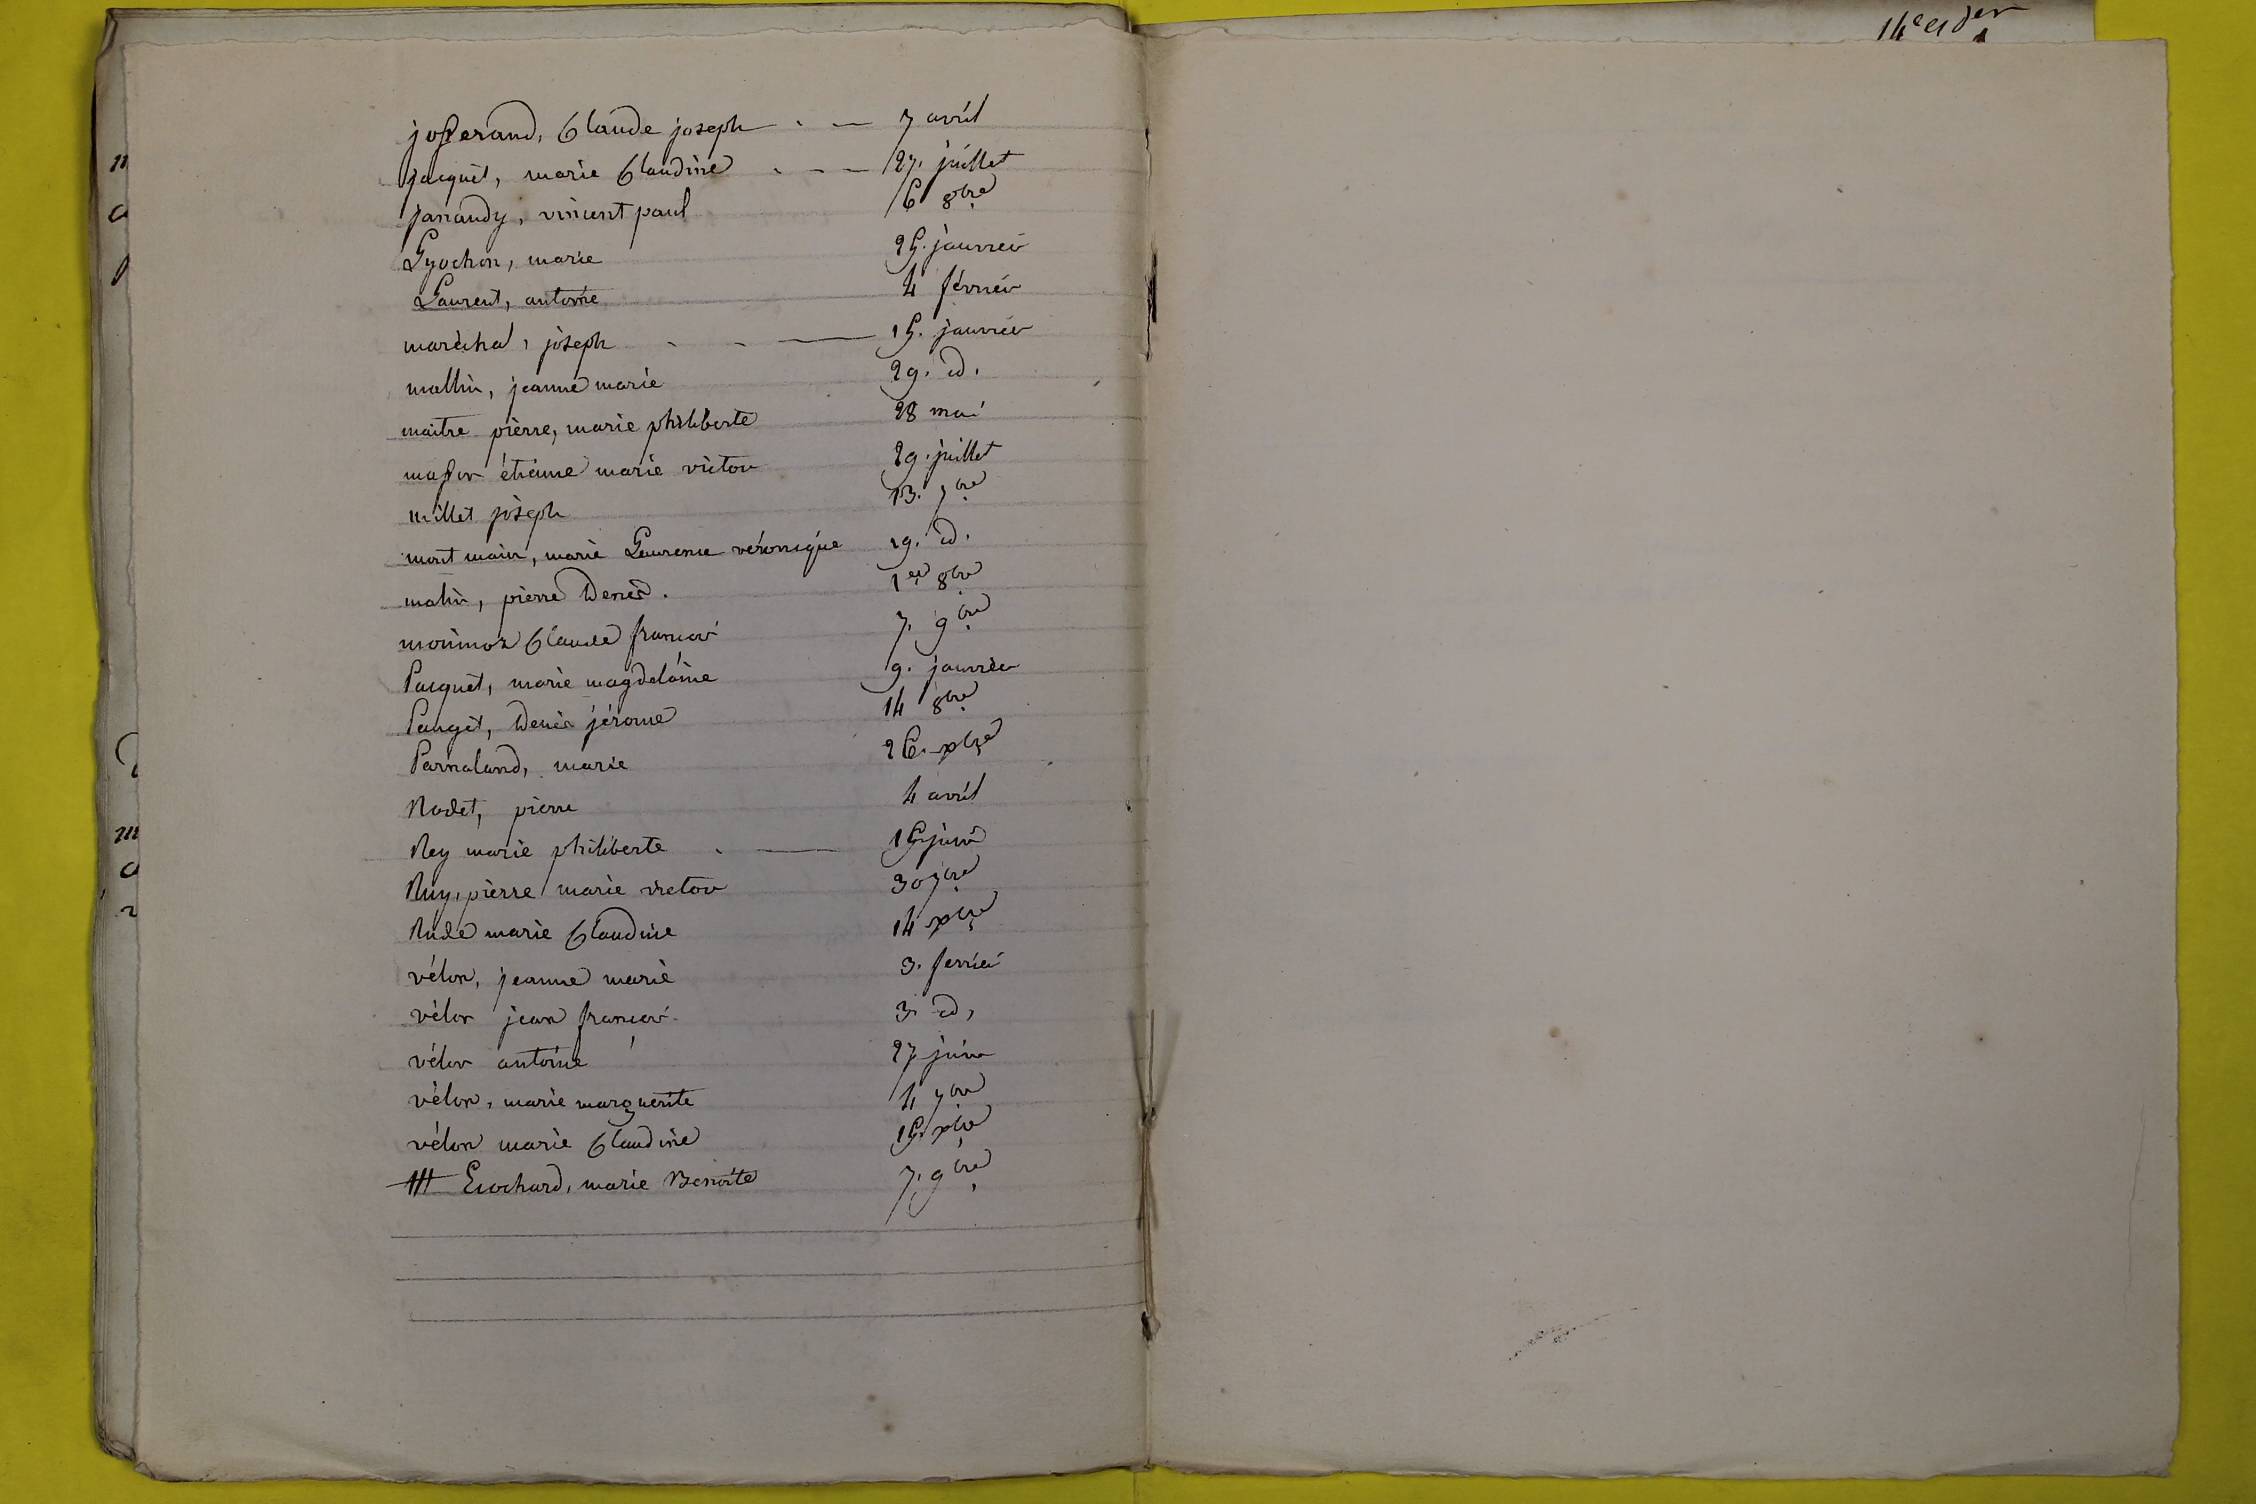 14e et der
josserand, Claude joseph . — 7 avril
jacquet, marie Claudine . - — 27. juillet
janaudy, vincent paul 6 8bre
Guochon, marie 25. janvier
Laurent, antoine 4 février
maréchal, joseph - - — 15. janvier
mathin, jeanne marie 29. id.
maitre pierre, marie philiberte 28 mai
masson étienne marie victor 29. juillet
millet joseph 13. 7bre
mont main, marie Laurence véronique 19. id.
mathin, pierre Denis. 1er 8bre
morimoz Claude francois 7. 9bre
Pacquet, marie magdelaine 9. janvier
Pauget, Denis jérome 14 8bre
Parnaland, marie 26. xbre
Rodet, pierre 4 avril
Rey marie philiberte . — 15 juin
Ruy, pierre marie victor 30 7bre
Rude marie Claudine 14 xbre
vélon, jeanne marie 3. fevrier
vélon jean francois 3. id,
vélon antoine 27 juin
vélon, marie marguerite 4 7bre
vélon marie Claudine 15. xbre
Ecochard, marie Benoite 7. 9bre